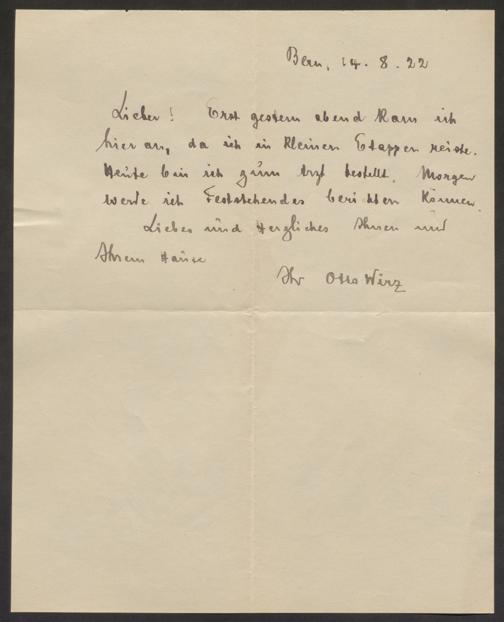 Bern, 14. 8. 22
Lieber! Erst gestern abend kam ich
hier an, da ich in kleinen Etappen reiste.
Heute bin ich zum Arzt bestellt. Morgen
werde ich Feststehendes berichten können.
Liebes und Herzliches Ihnen und
Ihrem Hause
Ihr Otto Wirz